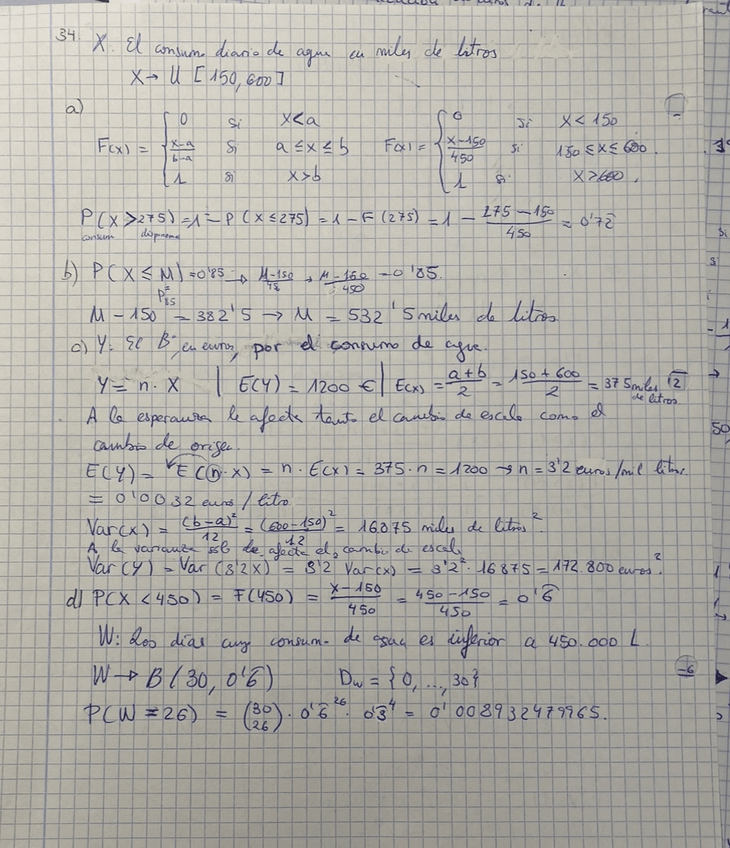 34. X: El consumo diario de agua en miles de litros
X → U [150,600]
a)
F(x) = { 0 si x<a
x-a/b-a si a ≤ x ≤ b
1 si x>b
F(x) = { 0 si x < 150
x-150/450 si 150 ≤ x ≤ 600.
1 si x>600.
P(X>275) = 1 - P(X ≤ 275) = 1 - F(275) = 1 - 275-150/450 = 0'72̄
consum
b) P(X ≤ M) = 0'85 → M-150/ → M-150/450 = 0'85.
P85
M - 150 = 382'5 → M = 532'5 miles de litros.
c) Y: El Bº, en euros, por el consumo de agua.
Y = n · X | E(Y) = 1200 € | E(x) = a+b/2 = 150+600/2 = 375 miles de litros
A la esperanza le afecta tanto el cambio de escala como el
cambio de origen.
E(Y) = E(n · X) = n · E(X) = 375 · n = 1200 → n = 3'2 euros/mil litros.
= 0'0032 euros/litro
Var(X) = (b-a)²/12 = (600-150)²/12 = 16875 miles de litros².
A la varianza solo le afecta el cambio de escala
Var(Y) = Var(3'2X) = 3'2² Var(X) = 3'2² · 16875 = 172.800 euros².
d) P(X < 450) = F(450) = x-150/450 = 450-150/450 = 0'6̄
W: Los días cuyo consumo de agua es inferior a 450.000 L.
W → B(30, 0'6̄) Dw = {0, ..., 30}
P(W = 26) = (30 26) · 0'6̄²⁶ · 0'3̄⁴ = 0'008932479965.